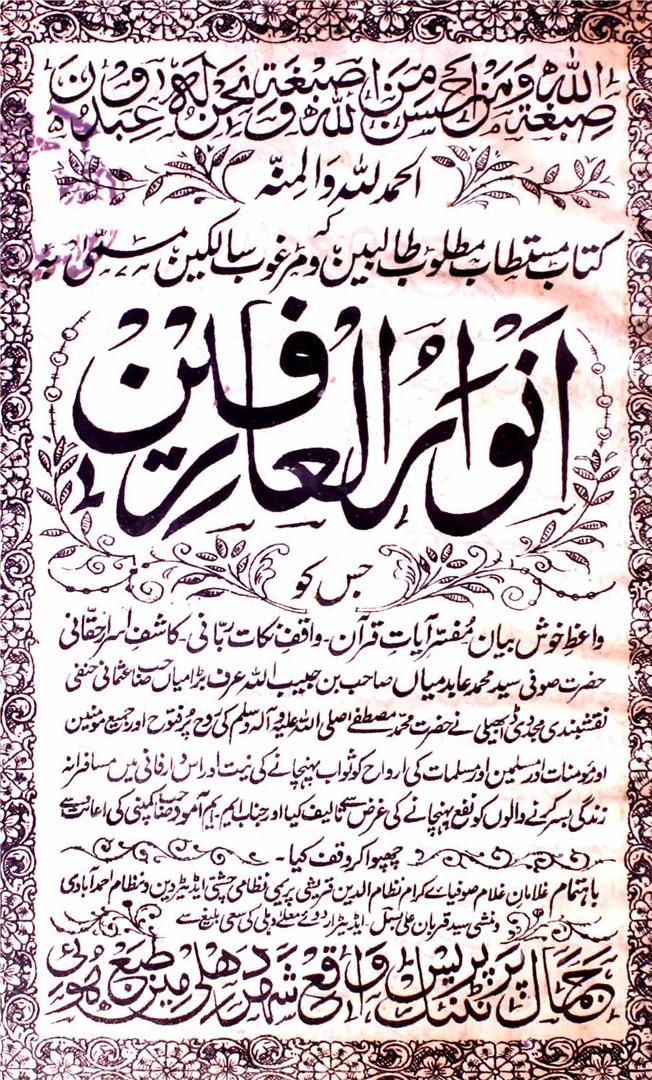 صبغة الله ومن احسن من الله صبغة ونحن له عبدون
الحمد للہ والمنہ
کہ
کتاب مستطاب مطلوب طالبین و مرغوب سالکین مسمّیٰ بہ
انوار العارفین
جس کو
واعظ خوش بیان۔ مفسّر آیات قرآن۔ واقف نکات ربّانی۔ کاشف اسرار حقانی
حضرت صوفی سید محمد عابد میاں صاحب بن حبیب اللہ عرف بڑا میاں صاحب عثمانی حنفی
نقشبندی مجددی ڈابھیلی نے حضرت محمد مصطفےٰ صلی اللہ علیہ وآلہ وسلم کی روح پُرفتوح اور جمیع مومنین
اور مومنات اور مسلمین اور مسلمات کی ارواح کو ثواب پہنچانے کی نیت اور اس دار فانی میں مسافرانہ
زندگی بسر کرنے والوں کو نفع پہنچانے کی غرض سے تالیف کیا اور جناب ایم۔ یم آمود صاحب کمپنی کی اعانت سے
چھپوا کر وقف کیا۔
باہتمام غلامان غلام صوفیائے کرام نظام الدین قریشی پریمی نظامی چشتی ایڈیٹر دین و نظام احمدآبادی
و منشی سید قربان علی بسمل۔ ایڈیٹر اردوئے معلے دہلی کی سعی بلیغ سے
جمال پرنٹنگ پریس واقع شہر دھلی میں طبع ھوئی